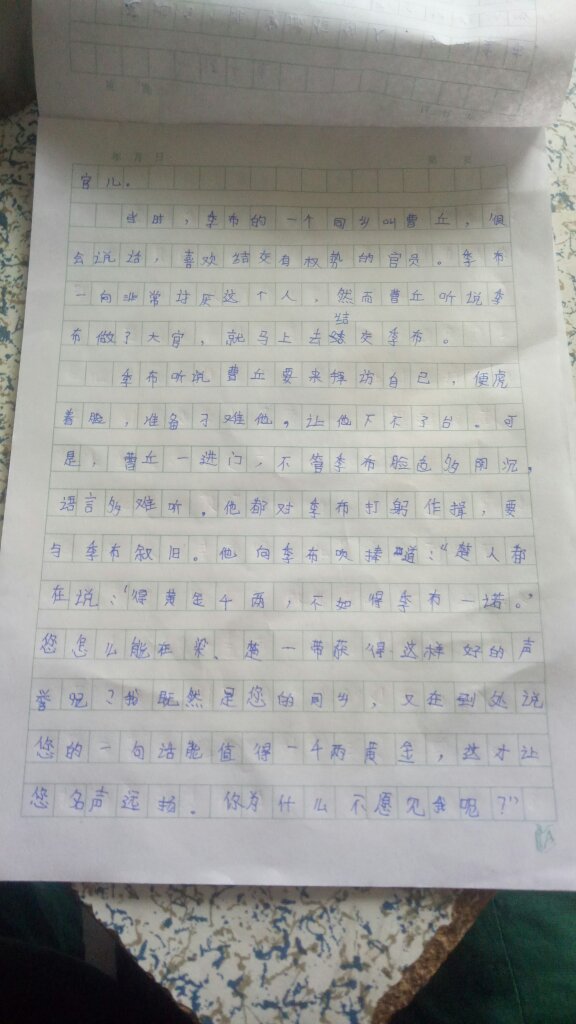 年 月 日 第 页
官儿。
当时，季布的一个同乡叫曹丘，很
会说话，喜欢结交有权势的官员。季布
一向非常讨厌这个人，然而曹丘听说季
布做了大官，就马上去结交季布。
季布听说曹丘要来拜访自己，便虎
着脸，准备刁难他，让他下不了台。可
是，曹丘一进门，不管季布脸色多阴沉，
语言多难听。他都对季布打躬作揖，要
与季布叙旧。他向季布吹捧道："楚人都
在说：'得黄金千两，不如得季布一诺。'
您怎么能在梁、楚一带获得这样好的声
誉呢？我既然是您的同乡，又在到处说
您的一句话能值得一千两黄金，这才让
您名声远扬。你为什么不愿见我呢？"